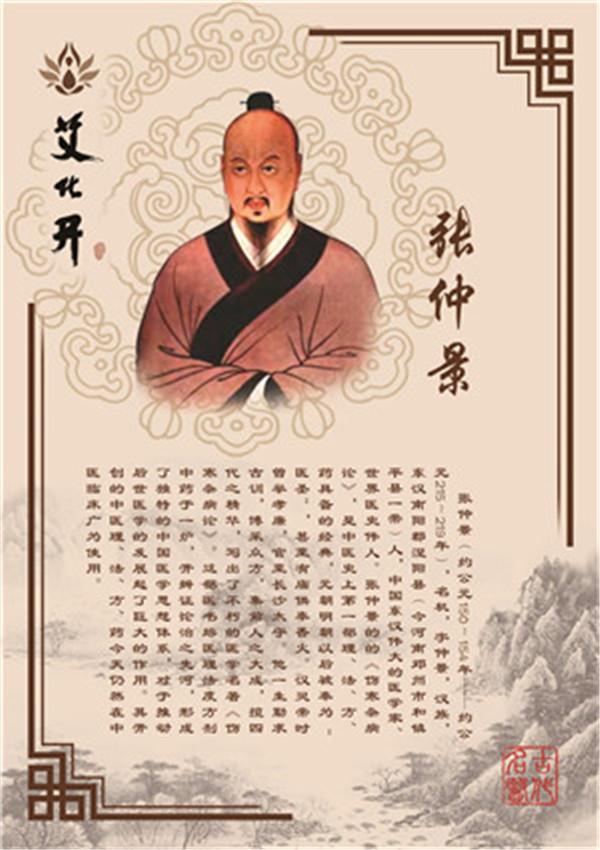 艾化开
张仲景
张仲景(约公元150~154年——约公
元215~219年),名机,字仲景,汉族,
东汉南阳郡涅阳县(今河南邓州市和镇
平县一带)人,中国东汉伟大的医学家、
世界医史伟人。张仲景的的《伤寒杂病
论》,是中医史上第一部理、法、方、
药具备的经典,元朝明朝以后被奉为“
医圣”,甚至有庙供奉香火,汉灵帝时
曾举孝廉,官至长沙太守 他一生勤求
古训,博采众方,集前人之大成,揽四
代之精华,写出了不朽的医学名著《伤
寒杂病论》。这部医书熔医理法度方剂
中药于一炉,开辨证论治之先河,形成
了独特的中国医学思想体系,对于推动
后世医学的发展起了巨大的作用。其所
创的中医理、法、方、药今天仍然在中
医临床广为使用。
古代
名医